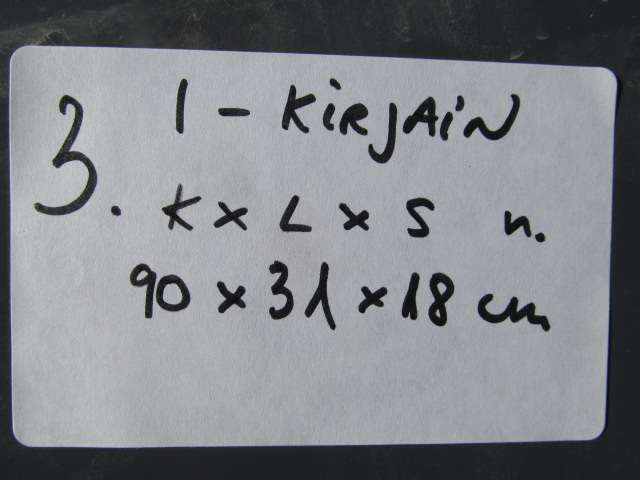 3. I - KiRJAiN
K x L x S n.
90 x 31 x 18 cm